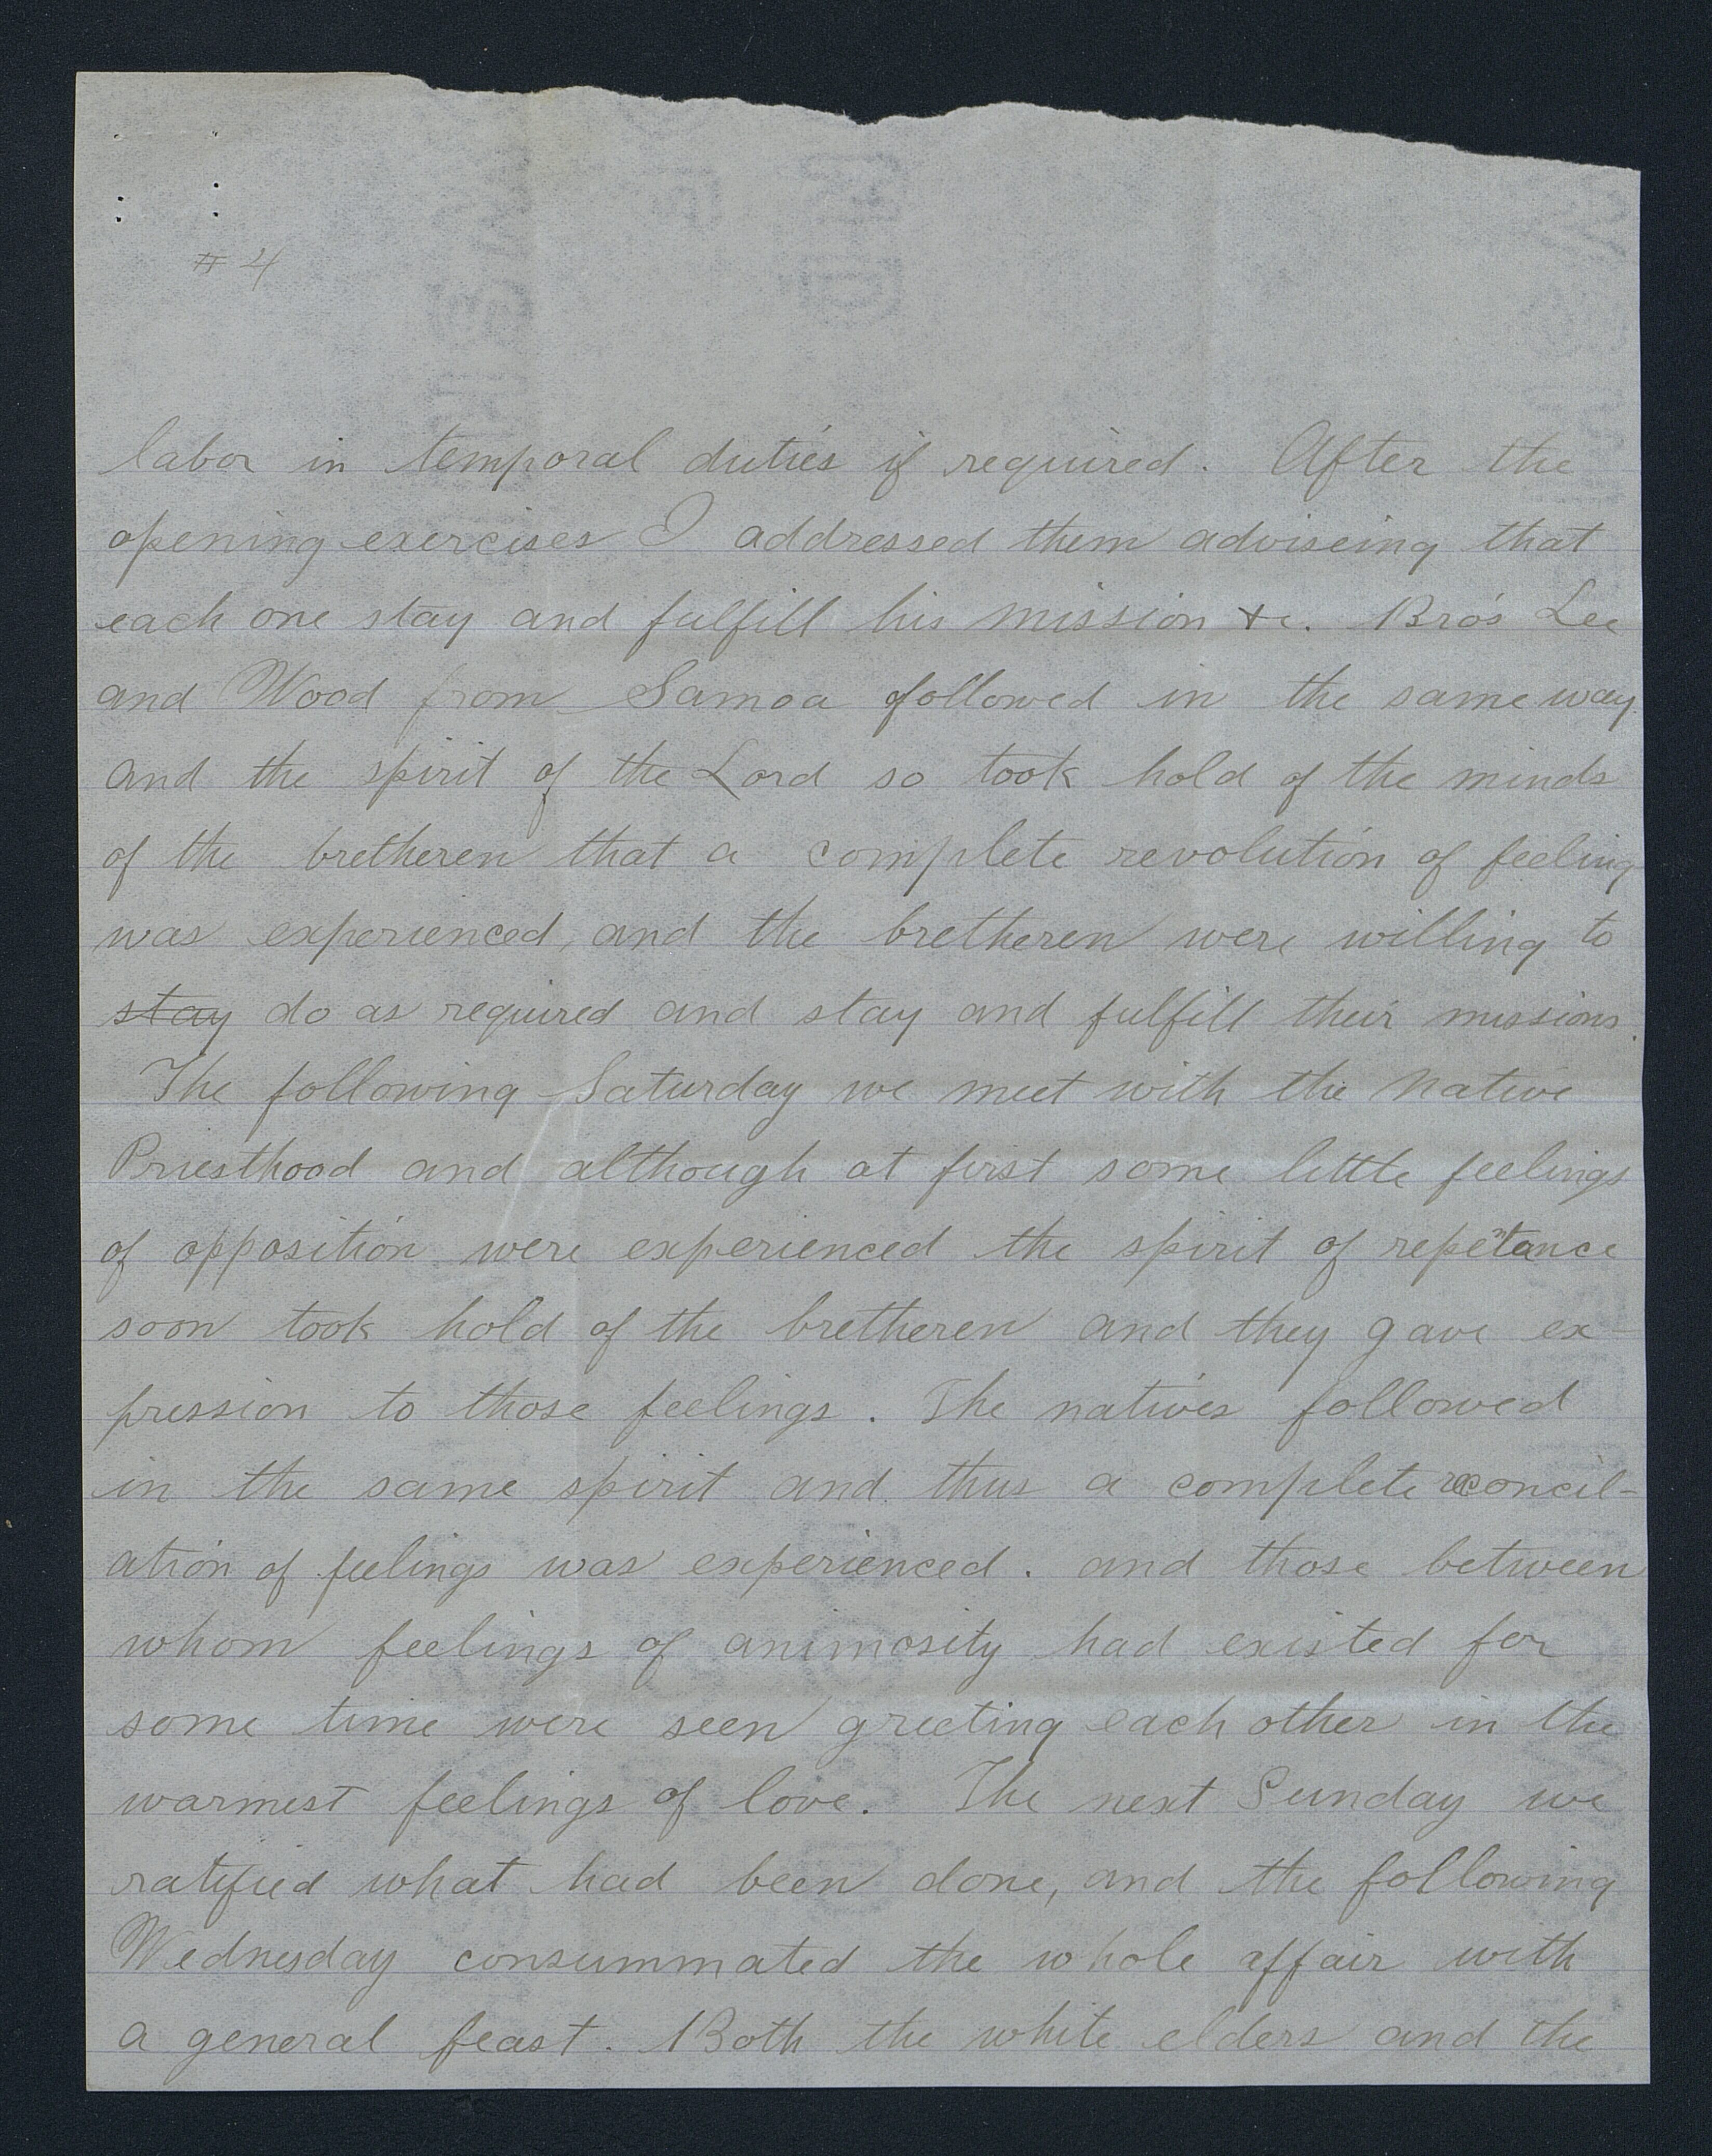 # 4
labor in temporal duties if required. After the
opening exercises I addressed them adviseing that
each one stay and fulfill his mission &c. Bro's Lee
and Wood from Samoa followed in the same way
and the spirit of the Lord so took hold of the minds
of the bretheren that a complete revolution of feeling
was experienced, and the bretheren were willing to
stay do as required and stay and fulfill their missions.
The following Saturday we meet with the native
Priesthood and although at first some little feelings
of opposition were experienced the spirit of repentance
soon took hold of the bretheren and they gave ex-
pression to those feelings. The natives followed
in the same spirit and thus a complete reconcil-
ation of feelings was experienced. and those between
whom feelings of animosity had existed for
some time were seen greeting each other in the
warmest feelings of love. The next Sunday we
ratified what had been done, and the following
Wednesday consummated the whole affair with
a general feast. Both the white elders and the